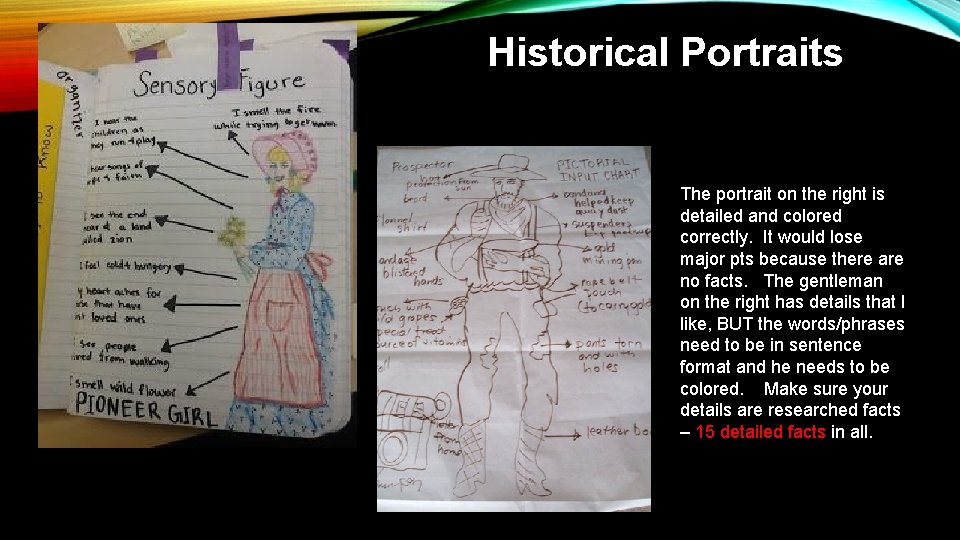 Historical Portraits
Sensory Figure
Organizer
Know
I hear the
children as
they run + play
I smell the fire
while trying to get warm
hear songs of
I see the end
near of a land
called zion
I feel cold + hungery
My heart aches for
those that have
lost loved ones
I see people
tired from walking
I smell wild flower
PIONEER GIRL
Prospector
hat
protection from
sun
PICTORIAL
INPUT CHART
beard
bandana
helped keep
away dust
flannel
shirt
suspenders
bandage
blistered
hands
gold
mining pan
rope belt
pouch
(to carry gold)
pouch with
wild grapes
special treat
source of vitamins
pants torn
and with
holes
from
home
leather
The portrait on the right is
detailed and colored
correctly. It would lose
major pts because there are
no facts. The gentleman
on the right has details that I
like, BUT the words/phrases
need to be in sentence
format and he needs to be
colored. Make sure your
details are researched facts
– 15 detailed facts in all.